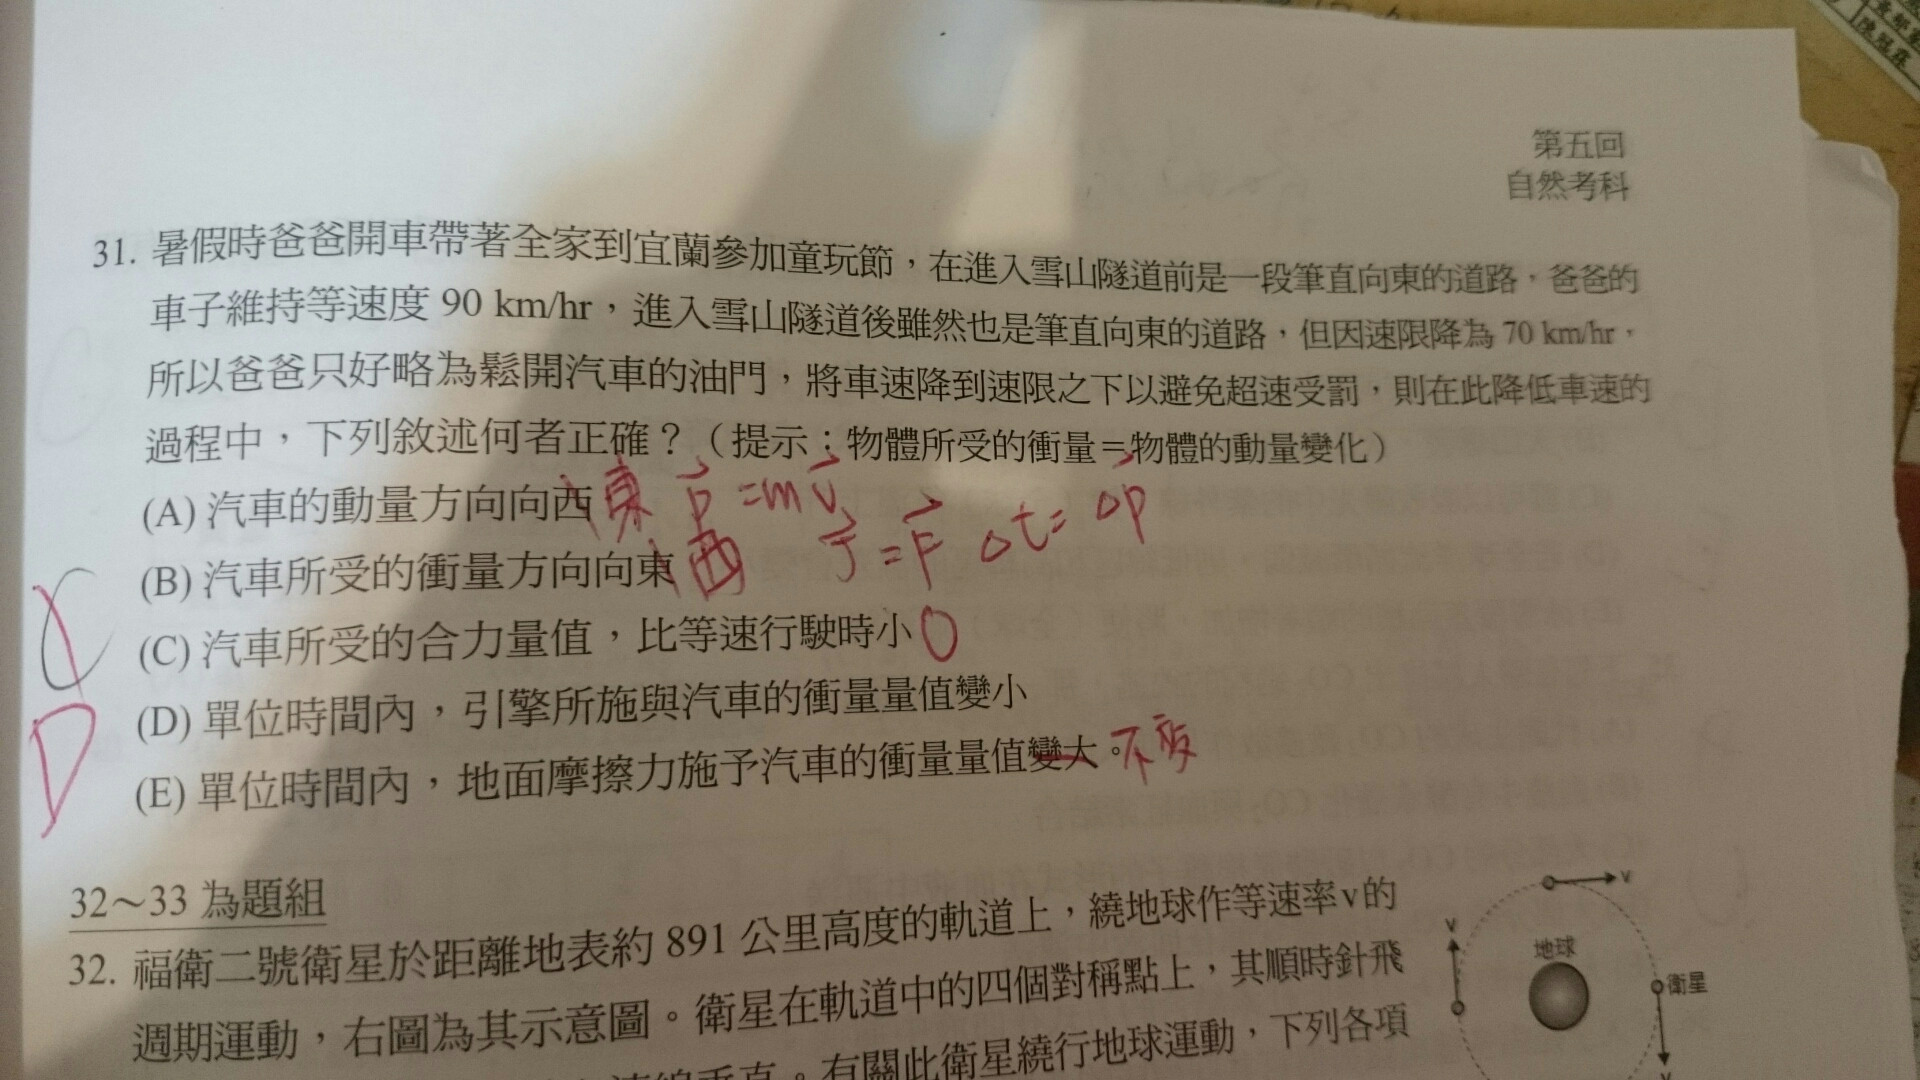 第五回
自然考科
31. 暑假時爸爸開車帶著全家到宜蘭參加童玩節，在進入雪山隧道前是一段筆直向東的道路，爸爸的
車子維持等速度 90 km/hr，進入雪山隧道後雖然也是筆直向東的道路，但因速限降為 70 km/hr，
所以爸爸只好略為鬆開汽車的油門，將車速降到速限之下以避免超速受罰，則在此降低車速的
過程中，下列敘述何者正確？（提示：物體所受的衝量＝物體的動量變化）
(A) 汽車的動量方向向西 東 p⃗ = mv⃗
(B) 汽車所受的衝量方向向東 西 J⃗ = F⃗ Δt = Δp⃗
(C) 汽車所受的合力量值，比等速行駛時小 0
(D) 單位時間內，引擎所施與汽車的衝量量值變小
D
(E) 單位時間內，地面摩擦力施予汽車的衝量量值變大。不变
32～33 為題組
32. 福衛二號衛星於距離地表約 891 公里高度的軌道上，繞地球作等速率v的
週期運動，右圖為其示意圖。衛星在軌道中的四個對稱點上，其順時針飛
有關此衛星繞行地球運動，下列各項
v
v
地球
衛星
v